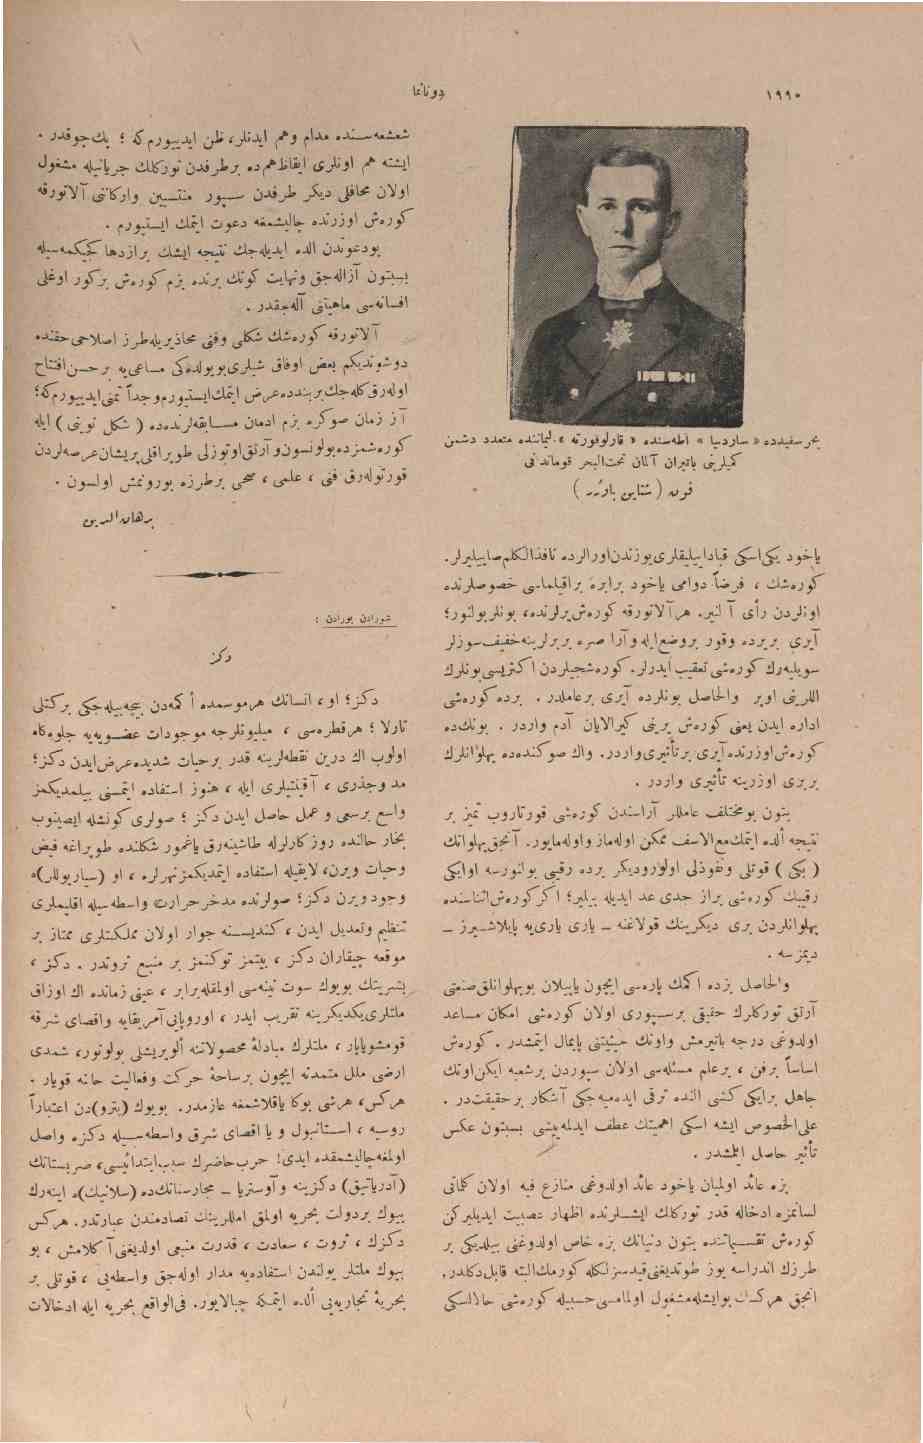 ١٩٩٠
دوناعا
بحر سفيدده « ساردنيا » اطه‌سنده « قارلوفورته » ليماننده متعدد دشمن
كميلرينى باتيران آلمان تحت‌البحر قوماندانى
فون ( شتاين باورر )
ياخود يكى اسكى قبادايليقلرى يوزندن اورالرده نافذالكلم صاييليرلر.
كوره‌شك ، فرضاً دوامى ياخود برابره براقيلماسى خصوصلرنده
اونلردن رأى آلنير. هر آلاتورقه كوره‌ش يرلرنده، بونلر بولنور؛
آيرى بر يرده وقور بر وضع ايله و آرا صره بربرلرينه خفيف سوزلر
سويليه‌رك كوره‌شى تعقيب ايدرلر. كوره‌شجيلردن اكثريسى بونلرك
اللرينى اوپر والحاصل بونلرده آيرى بر عاملدر . برده كوره‌شى
اداره ايدن يعنى كوره‌ش يرينى كيرالايان آدم واردر. بونك‌ده
كوره‌ش اوزرنده آيرى بر تأثيرى واردر. و اك صوكنده‌ده پهلوانلرك
بربرى اوزرينه تأثيرى واردر .
بتون بو مختلف عاملر آراسندن كوره‌شى قورتاروب تميز بر
نتيجه ألده ايتمك مع‌الاسف ممكن اوله‌ماز و اوله‌مايور. آنجق پهلوانك
( بكى ) قوتلى و نفوذلى اولور و ديكر برده رقيبى بولنورسه او ايكى
رقيبك كوره‌شى براز جدى عد ايديله بيلير؛ اكر كوره‌ش اثناسنده
پهلوانلردن برى ديكرينك قولاغنه ــ يارى يارى‌يه پايلاشيرز ــ
ديمزسه .
والحاصل بزده اكمك پاره‌سى ايچون ياپيلان بو پهلوانلق صنعتى
آرتق توركلرك حقيقى بر سپورى اولان كوره‌شى امكان مساعد
اولدوغى درجه باتيرمش و اونك حيثيتنى پايمال ايتمشدر . كوره‌ش
اساساً بر فن ، بر علم مسئله‌سى اولان سپوردن بر شعبه ايكن اونك
جاهل بر ايكى كشى النده ترقى ايده‌ميه‌جكى آشكار بر حقيقتدر .
على‌الخصوص ايشه اسكى اهميتك عطف ايدلمه‌ييشى بسبتون عكس
تأثير حاصل ايلمشدر .
بزه عائد اولميان ياخود عائد اولدوغى منازع فيه اولان كلماتى
لسانمزه ادخاله قدر توركلك ايشلرنده اظهار عصبيت ايديليركن
كوره‌ش تقسيماتنده بتون دنيانك بزه خاص اولدوغنى بيلديكى بر
طرزك اندراسه يوز طوتديغنى قيدسزلكله كورمك البته قابل دكلدر.
انجق هركسك بو ايشله مشغول اولمامسى حسبيله كوره‌شى حالا اسكى
شعشعه‌سنده مدام وهم ايدنلر، ظن ايدييورم كه ؛ پك چوقدر .
ايشته هم اونلرى ايقاظ هم‌ده بر طرفدن توركلك جريانيله مشغول
اولان محافلى ديكر طرفدن سپور منتسبين و اركاننى آلاتورقه
كوره‌ش اوزرنده چاليشمغه دعوت ايتمك ايستيورم .
بو دعوتدن الده ايديله‌جك نتيجه ايشك براز دها كجيكمه‌سيله
بسبتون آزاله‌جق و نهايت كونك برنده بزم كوره‌ش بر كور اوغلى
افسانه‌سى ماهيتنى آله‌جقدر .
آلاتورقه كوره‌شك شكلى و فنى محاذيريله طرز اصلاحى حقنده
دوشونديكم بعض اوفاق شيلرى بو يولده‌كى مساعى‌يه بر حسن افتتاح
اوله‌رق كله‌جك بر بندده عرض ايتمك ايستيورم و جداً تمنى ايدييورم كه؛
آز زمان صوكره بزم ادمان مسابقه‌لرنده‌ده ( شكل نوينى ) ايله
كوره‌شمزده بولونسون و آرتق او توزلى طوپراقلى پريشان عرصه‌لردن
قورتوله‌رق فنى ، علمى ، صحى بر طرزه بورونمش اولسون .
برهان‌الدين
شورادن بورادن :
دكز
دكز؛ او، انسانك هر موسمده أكمه‌دن بيچه‌بيله‌جكى بركتلى
تارلا ؛ هر قطره‌سى ، ميليونلرجه موجودات عضويه‌يه جلوه‌كاه
اولوب اك درين نقطه‌لرينه قدر بر حيات شديده عرض ايدن دكز؛
مد و جذرى ، آقنتيلرى ايله ، هنوز استفاده ايتمسنى بيلمديكمز
واسع بر سعى و عمل حاصل ايدن دكز ؛ صولرى كونشله ايصينوب
بخار حالنده روزكارلرله طاشينه‌رق ياغمور شكلنده طوپراغه فيض
وحيات ويرن، لايقيله استفاده ايتمديكمز نهرلره ، او (سيار يوللر)ه
وجود ويرن دكز ؛ صولرنده مدخر حرارت واسطه‌سيله اقليملرى
تنظيم و تعديل ايدن ، كنديسنه جوار اولان مملكتلرى ممتاز بر
موقعه چيقاران دكز ، بيتمز توكنمز بر منبع ثروتدر . دكز ،
بشريتك بويوك سوت نينه‌سى اولمقله برابر ، عينى زمانده اك اوزاق
ملتلرى يكديكرينه تقريب ايدر ، اوروپايى آمريقايه و اقصاى شرقه
قومشو ياپار ، ملتلرك مبادلۀ محصولاتنه ألويريشلى يولوتور، شمدى
ارضى ملل متمدنه ايچون بر ساحۀ حركت و فعاليت حالنه قويار .
هركس، هر شى بوكا ياقلاشمغه عازمدر. بويوك (پترو)دن اعتباراً
روسيه ، استانبول و يا اقصاى شرق واسطه‌سيله دكزه واصل
اولمغه چاليشمقده ايدى! حرب حاضرك سبب ابتدائيسى، صربستانك
(آدرياتيق) دكزينه و آوستريا ــ مجارستانك‌ده (سلانيك)ه اينه‌رك
بيوك بر دولت بحريه اولمق امللرينك تصادمندن عبارتدر. هركس
دكزك ، ثروت ، سعادت ، قدرت منبعى اولديغنى آكلامش ، بو
بيوك ملتلر يولندن استفاده‌يه مدار اوله‌جق واسطه‌يى ، قوتلى بر
بحريۀ تجاريه‌يى ألده ايتمكه چبالايور. فى‌الواقع بحريه ايله ادخالات